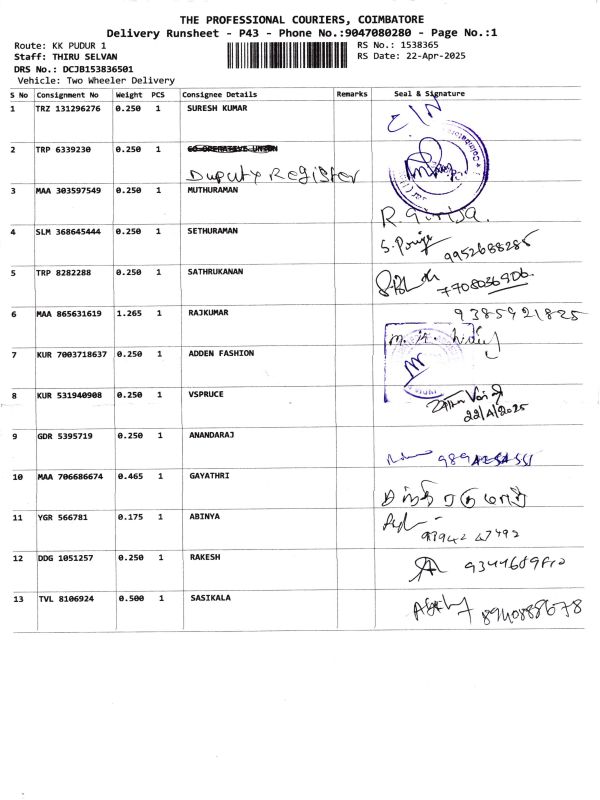 THE PROFESSIONAL COURIERS, COIMBATORE
Delivery Runsheet - P43 - Phone No.:9047080280 - Page No.:1
Route: KK PUDUR 1
RS No.: 1538365
Staff: THIRU SELVAN
RS Date: 22-Apr-2025
DRS No.: DCJB153836501
Vehicle: Two Wheeler Delivery
S No Consignment No Weight PCS Consignee Details Remarks Seal & Signature
1 TRZ 131296276 0.250 1 SURESH KUMAR
2 TRP 6339230 0.250 1 CO-OPERATIVE UNION
Duputy Register
3 MAA 303597549 0.250 1 MUTHURAMAN
R. Girija.
4 SLM 368645444 0.250 1 SETHURAMAN
9952688285
5 TRP 8282288 0.250 1 SATHRUKANAN
7708036906
6 MAA 865631619 1.265 1 RAJKUMAR
9385921825
7 KUR 7003718637 0.250 1 ADDEN FASHION
8 KUR 531940908 0.250 1 VSPRUCE
22/4/2025
9 GDR 5395719 0.250 1 ANANDARAJ
10 MAA 706686674 0.465 1 GAYATHRI
11 YGR 566781 0.175 1 ABINYA
12 DDG 1051257 0.250 1 RAKESH
13 TVL 8106924 0.500 1 SASIKALA
8940888678